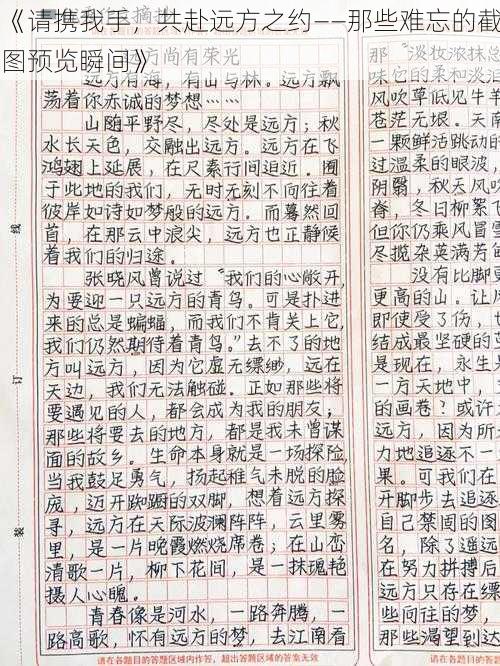 《请携我手，共赴远方之约——那些难忘的截
图预览瞬间》
方尚有荣光
远方有海，有山与林。远方飘
荡着你赤诚的梦想……
山随平野尽，尽处是远方；秋
水长天色，交融出远方。远方在飞
鸿翅上延展，在尺素行间迫近。囿
于此地的我们，无时无刻不向往着
彼岸如诗如梦般的远方。而蓦然回
首，在那云中浪尖，远方也正静候
着我们的归途。
张晓风曾说过“我们的心敞开，
为要迎一只远方的青鸟。可是扑进
来的总是蝙蝠，而我们不肯关上它，
我们仍然期待着青鸟。”去不了的地
方叫远方，因为它虚无缥缈，远在
天边，我们无法触碰。正如那些将
要遇见的人，都会成为我的朋友；
那些将要去的地方，都是我未曾谋
面的故乡。生命本身就是一场探险，
当我鼓足勇气，扬起稚气未脱的脸
庞，迈开踟蹰的双脚，想着远方探
寻，远方在天际波澜阵阵，云里雾
里，是一片晚霞燃烧席卷；在山峦
清歌一片，柳下花间，是一抹瑰艳
摄人心魄。
青春像是河水，一路奔腾，一
路高歌，怀有远方的梦，去江南看
请在各题目的答题区域内作答，超出答题区域的答案无效
那“淡妆浓抹总
味它的柔和淡
风吹草低见牛羊
苍茫无垠。天南
一颗鲜活跳动的
过温柔的眼波，
阴翳，秋天风
脊，冬日柳絮飞
但你仍乘风冒雪
尽揽杂英满芳甸
没有比脚更
更高的山。让
即使受了伤，
结成最坚硬的
是现在，永生
一方天地中，
的画卷？或许
远方，因为
力地追逐不一
果。可我们在
开脚步去追逐
自己禁固的图
名，除了遥远
在努力拼搏后
远方只存在缥
些向往的梦，
那些渴望到达
线
订
装